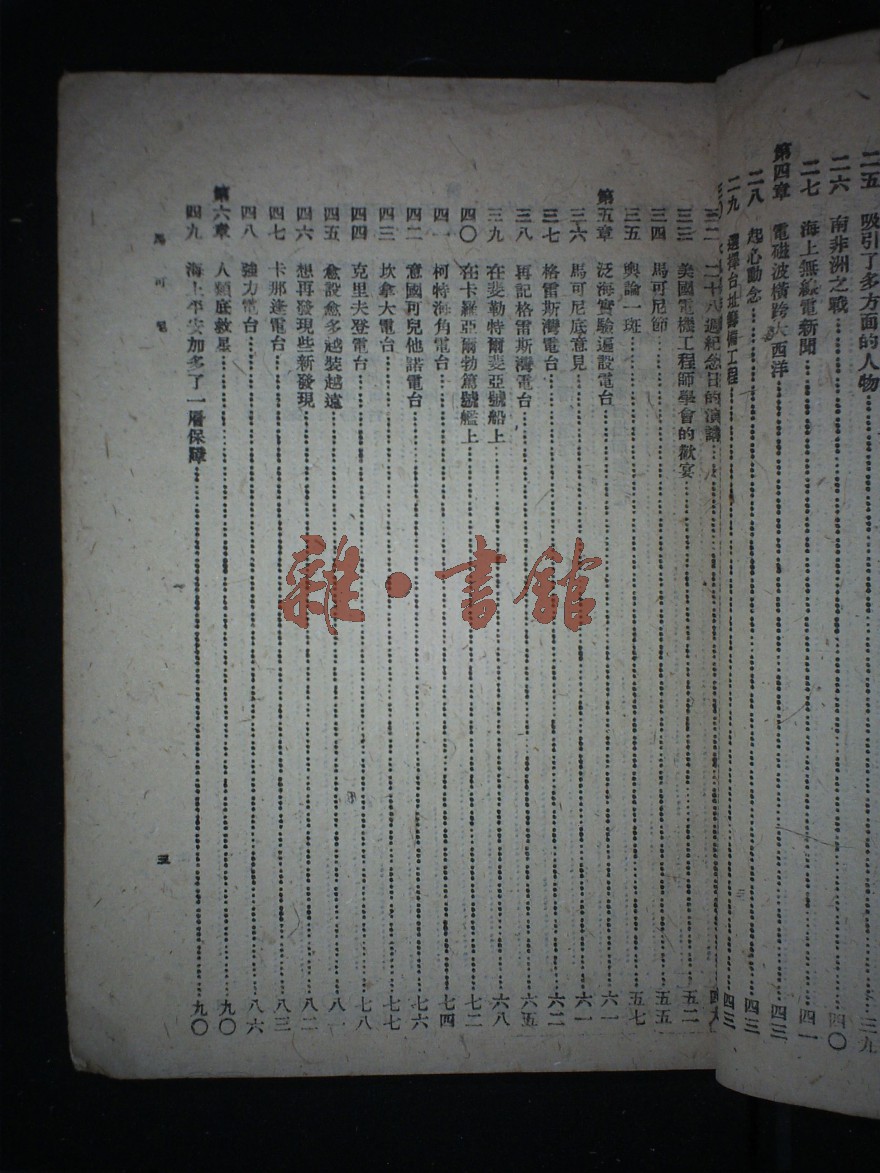 二五 吸引了多方面的人物 三九
二六 南非洲之戰 四〇
二七 海上無線電新聞 四一
第四章 電磁波橫跨大西洋 四三
二八 起心動念 四三
二九 選擇台址籌備工程 四三
三二 二十八週紀念日的演講
三三 美國電機工程師學會的歡宴 五二
三四 馬可尼節 五五
三五 輿論一班 五七
第五章 泛海實驗遍設電台 六一
三六 馬可尼底意見 六一
三七 格雷斯灣電台 六二
三八 再記格雷斯灣電台 六五
三九 在斐勒特爾斐亞號船上 六八
四〇 在卡羅亞爾勃篤號艦上 七二
四一 柯特海角電台 七四
四二 意國可兒他諾電台 七六
四三 坎拿大電台 七七
四四 克里夫登電台 七八
四五 愈設愈多越裝越遠 八一
四六 想再發現些新發現 八二
四七 卡那逢電台 八三
四八 強力電台 八六
第六章 人類底救星 九〇
四九 海上平安加多了一層保障 九〇
馬可尼
五
雜·書館